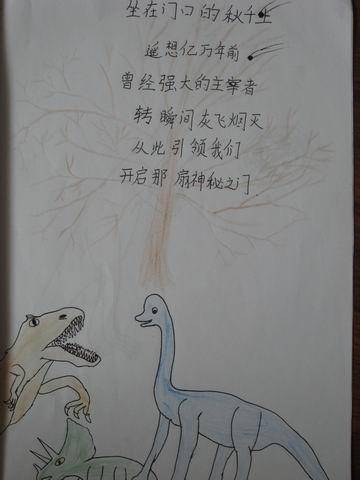 坐在门口的秋千上
遥想亿万年前
曾经强大的主宰者
转瞬间灰飞烟灭
从此引领我们
开启那扇神秘之门